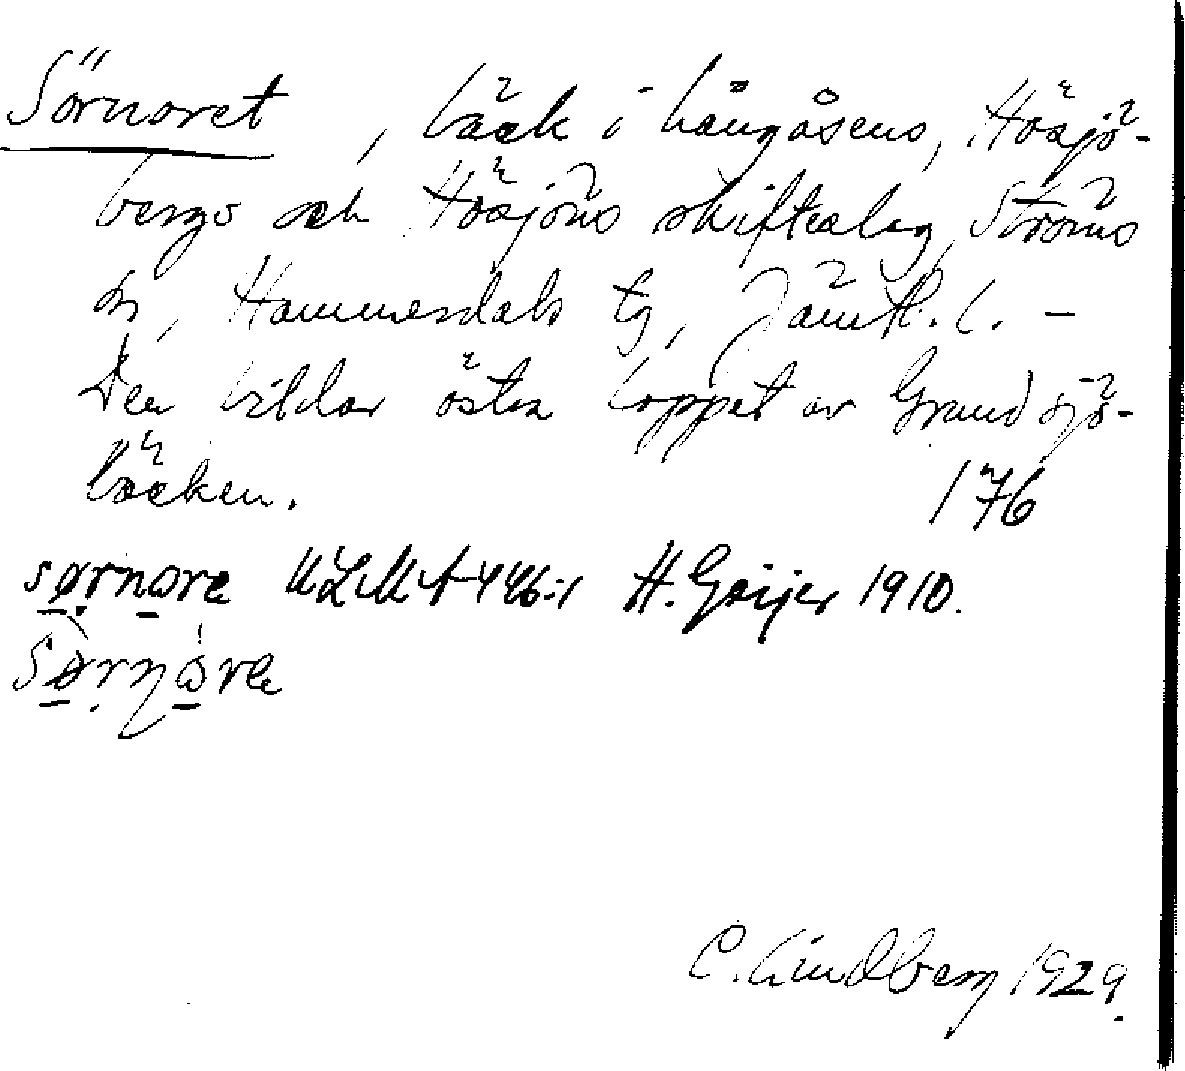 Sörnoret, bäck i Långåsens, Hösjö-
bergs och Hösjöns skifteslag, Ströms
sn, Hammerdals tg, Jämtl. l. –
Den bildar östra loppet av Grundsjö-
bäcken. 176
sørnore ULMA 446:1 H. Geijer 1910.
Sørnore
C. Lindberg 1929.